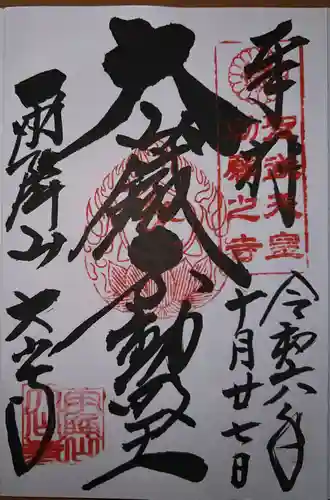 奉拝
聖武天皇
勅願之寺
令和六年
十月廿七日
大山鐵不動明王
雨降山
大山寺